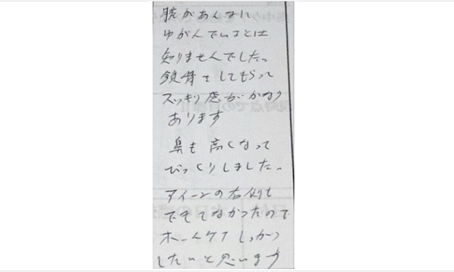 腕があんなに
ゆがんでいたとは
知りませんでした。
鎖骨をしてもらって
スッキリ感がかなり
あります
鼻も高くなって
びっくりしました。
アイーンの右側も
できてなかったので
ホームケアしっかり
したいと思います